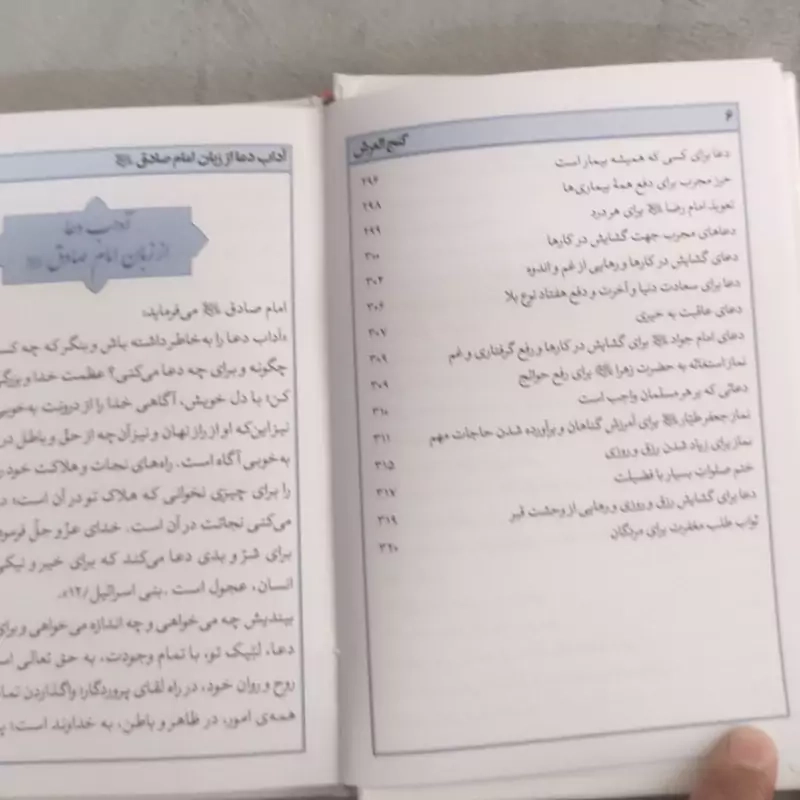 ۶
گنج العرش
دعا برای کسی که همیشه بیمار است ۲۹۶
حرز مجرب برای دفع همهٔ بیماری‌ها ۲۹۸
تعویذ امام رضا برای هر درد ۲۹۹
دعاهای مجرب جهت گشایش در کارها ۳۰۰
دعای گشایش در کارها و رهایی از غم و اندوه ۳۰۲
دعا برای سعادت دنیا و آخرت و دفع هفتاد نوع بلا ۳۰۶
دعای عاقبت به خیری ۳۰۷
دعای امام جواد برای گشایش در کارها و رفع گرفتاری و غم ۳۰۹
نماز استغاثه به حضرت زهرا برای رفع حوائج ۳۰۹
دعائی که بر هر مسلمان واجب است ۳۱۰
نماز جعفر طیار برای آمرزش گناهان و برآورده شدن حاجات مهم ۳۱۱
نماز برای زیاد شدن رزق و روزی ۳۱۵
ختم صلوات بسیار با فضیلت ۳۱۷
دعا برای گشایش رزق و روزی و رهایی از وحشت قبر ۳۱۹
ثواب طلب مغفرت برای مردگان ۳۲۰
آداب دعا از زبان امام صادق
آداب دعا
از زبان امام صادق
امام صادق می‌فرماید:
«آداب دعا را به خاطر داشته باش و بنگر که چه کسی
چگونه و برای چه دعا می‌کنی؟ عظمت خدا و بزرگی
کن؛ با دل خویش، آگاهی خدا را از درونت به‌خوبی
نیز این‌که او از راز نهان و نیز آن چه از حق و باطل در
به‌خوبی آگاه است. راه‌های نجات و هلاکت خود را
را برای چیزی نخوانی که هلاک تو در آن است؛ در
می‌کنی نجاتت در آن است. خدای عزّ و جلّ فرموده
برای شرّ و بدی دعا می‌کند که برای خیر و نیکی
انسان، عجول است. بنی اسرائیل/۱۲».
بیندیش چه می‌خواهی و چه اندازه می‌خواهی و برای
دعا، لبّیک تو، با تمام وجودت، به حق تعالی است
روح و روان خود، در راه لقای پروردگار؛ واگذاردن تمام
همه‌ی امور، در ظاهر و باطن، به خداوند است؛